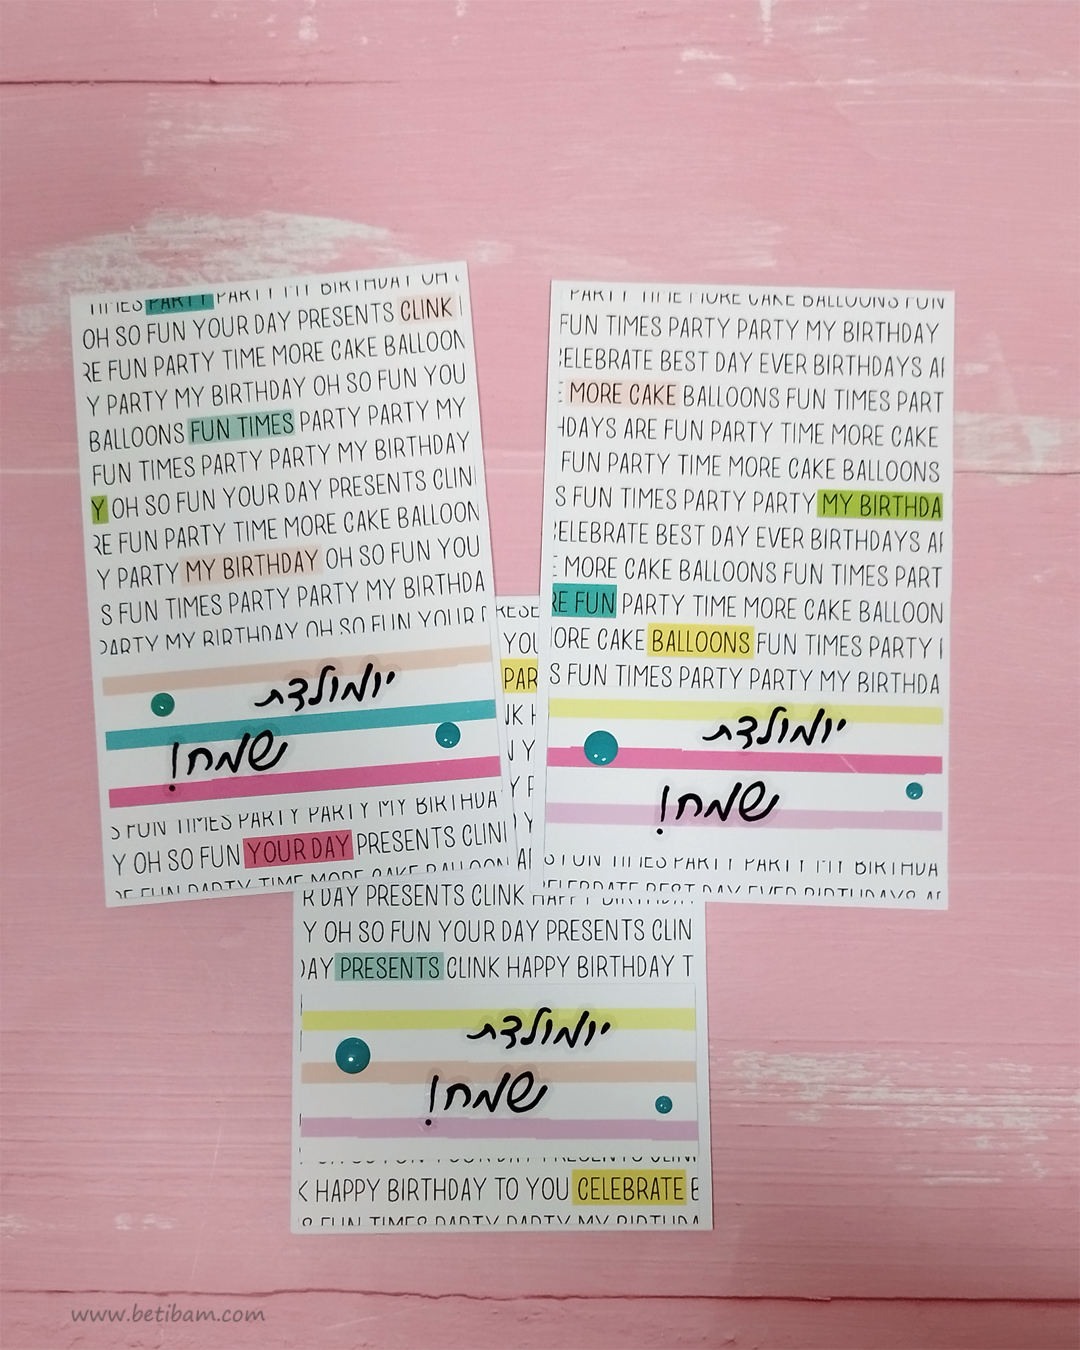 TIMES PARTY PARTY MY BIRTHDAY OH
OH SO FUN YOUR DAY PRESENTS CLINK
RE FUN PARTY TIME MORE CAKE BALLOON
Y PARTY MY BIRTHDAY OH SO FUN YOU
BALLOONS FUN TIMES PARTY PARTY MY
FUN TIMES PARTY PARTY MY BIRTHDAY
Y OH SO FUN YOUR DAY PRESENTS CLIN
RE FUN PARTY TIME MORE CAKE BALLOON
Y PARTY MY BIRTHDAY OH SO FUN YOU
S FUN TIMES PARTY PARTY MY BIRTHDA
PARTY MY BIRTHDAY OH SO FUN YOUR D
יומולדת
שמח!
S FUN TIMES PARTY PARTY MY BIRTHDA
Y OH SO FUN YOUR DAY PRESENTS CLIN
RE FUN PARTY TIME MORE CAKE BALLOON
PARTY TIME MORE CAKE BALLOONS FUN
FUN TIMES PARTY PARTY MY BIRTHDAY
CELEBRATE BEST DAY EVER BIRTHDAYS AR
E MORE CAKE BALLOONS FUN TIMES PART
HDAYS ARE FUN PARTY TIME MORE CAKE
FUN PARTY TIME MORE CAKE BALLOONS
S FUN TIMES PARTY PARTY MY BIRTHDA
CELEBRATE BEST DAY EVER BIRTHDAYS AR
E MORE CAKE BALLOONS FUN TIMES PART
RE FUN PARTY TIME MORE CAKE BALLOON
ORE CAKE BALLOONS FUN TIMES PARTY
S FUN TIMES PARTY PARTY MY BIRTHDA
יומולדת
שמח!
S FUN TIMES PARTY PARTY MY BIRTHDA
CELEBRATE BEST DAY EVER BIRTHDAYS AR
RESE
YOU
PAR
NK H
N Y
Y P
R DAY PRESENTS CLINK HAPPY BIRTHDAY
Y OH SO FUN YOUR DAY PRESENTS CLIN
DAY PRESENTS CLINK HAPPY BIRTHDAY T
יומולדת
שמח!
Y OH SO FUN YOUR DAY PRESENTS CLIN
K HAPPY BIRTHDAY TO YOU CELEBRATE B
S FUN TIMES PARTY PARTY MY BIRTHDA
www.betibam.com